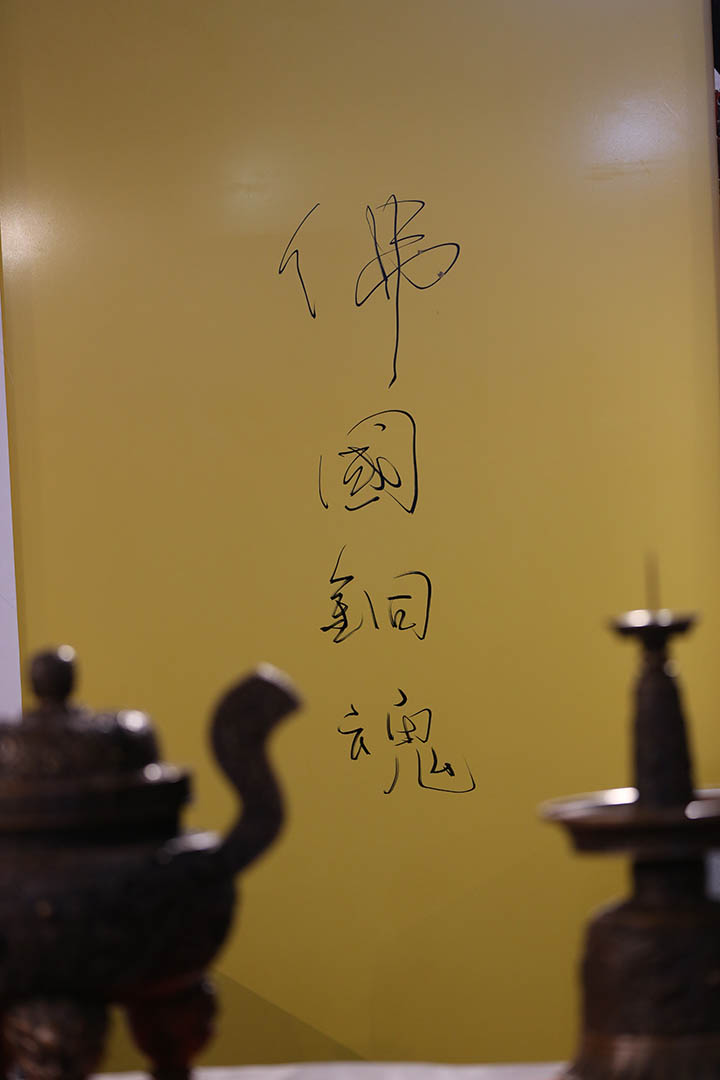 佛國銅魂